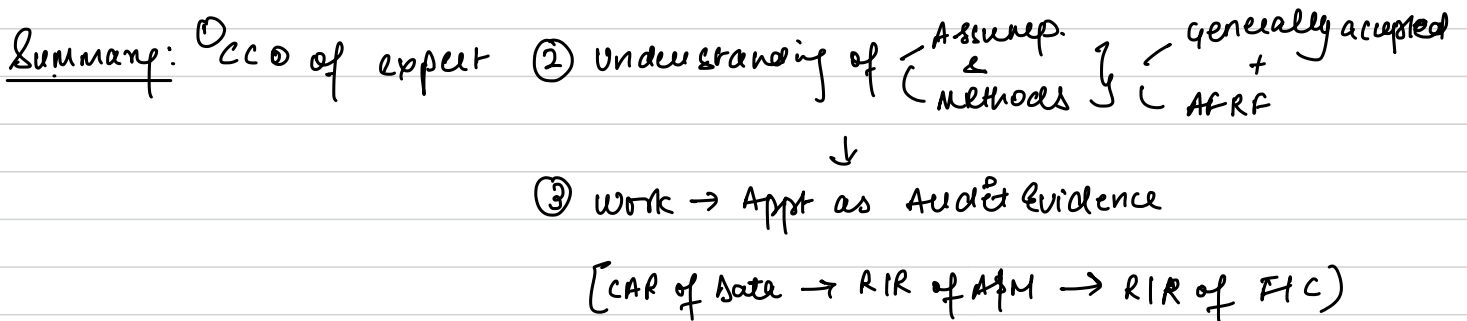 Summary: ① CCO of expert ② Understanding of { Assump. & Methods } { Generally accepted + AFRF
↓
③ Work → Appt as Audit Evidence
[CAR of Data → RIR of A&M → RIR of F/C)